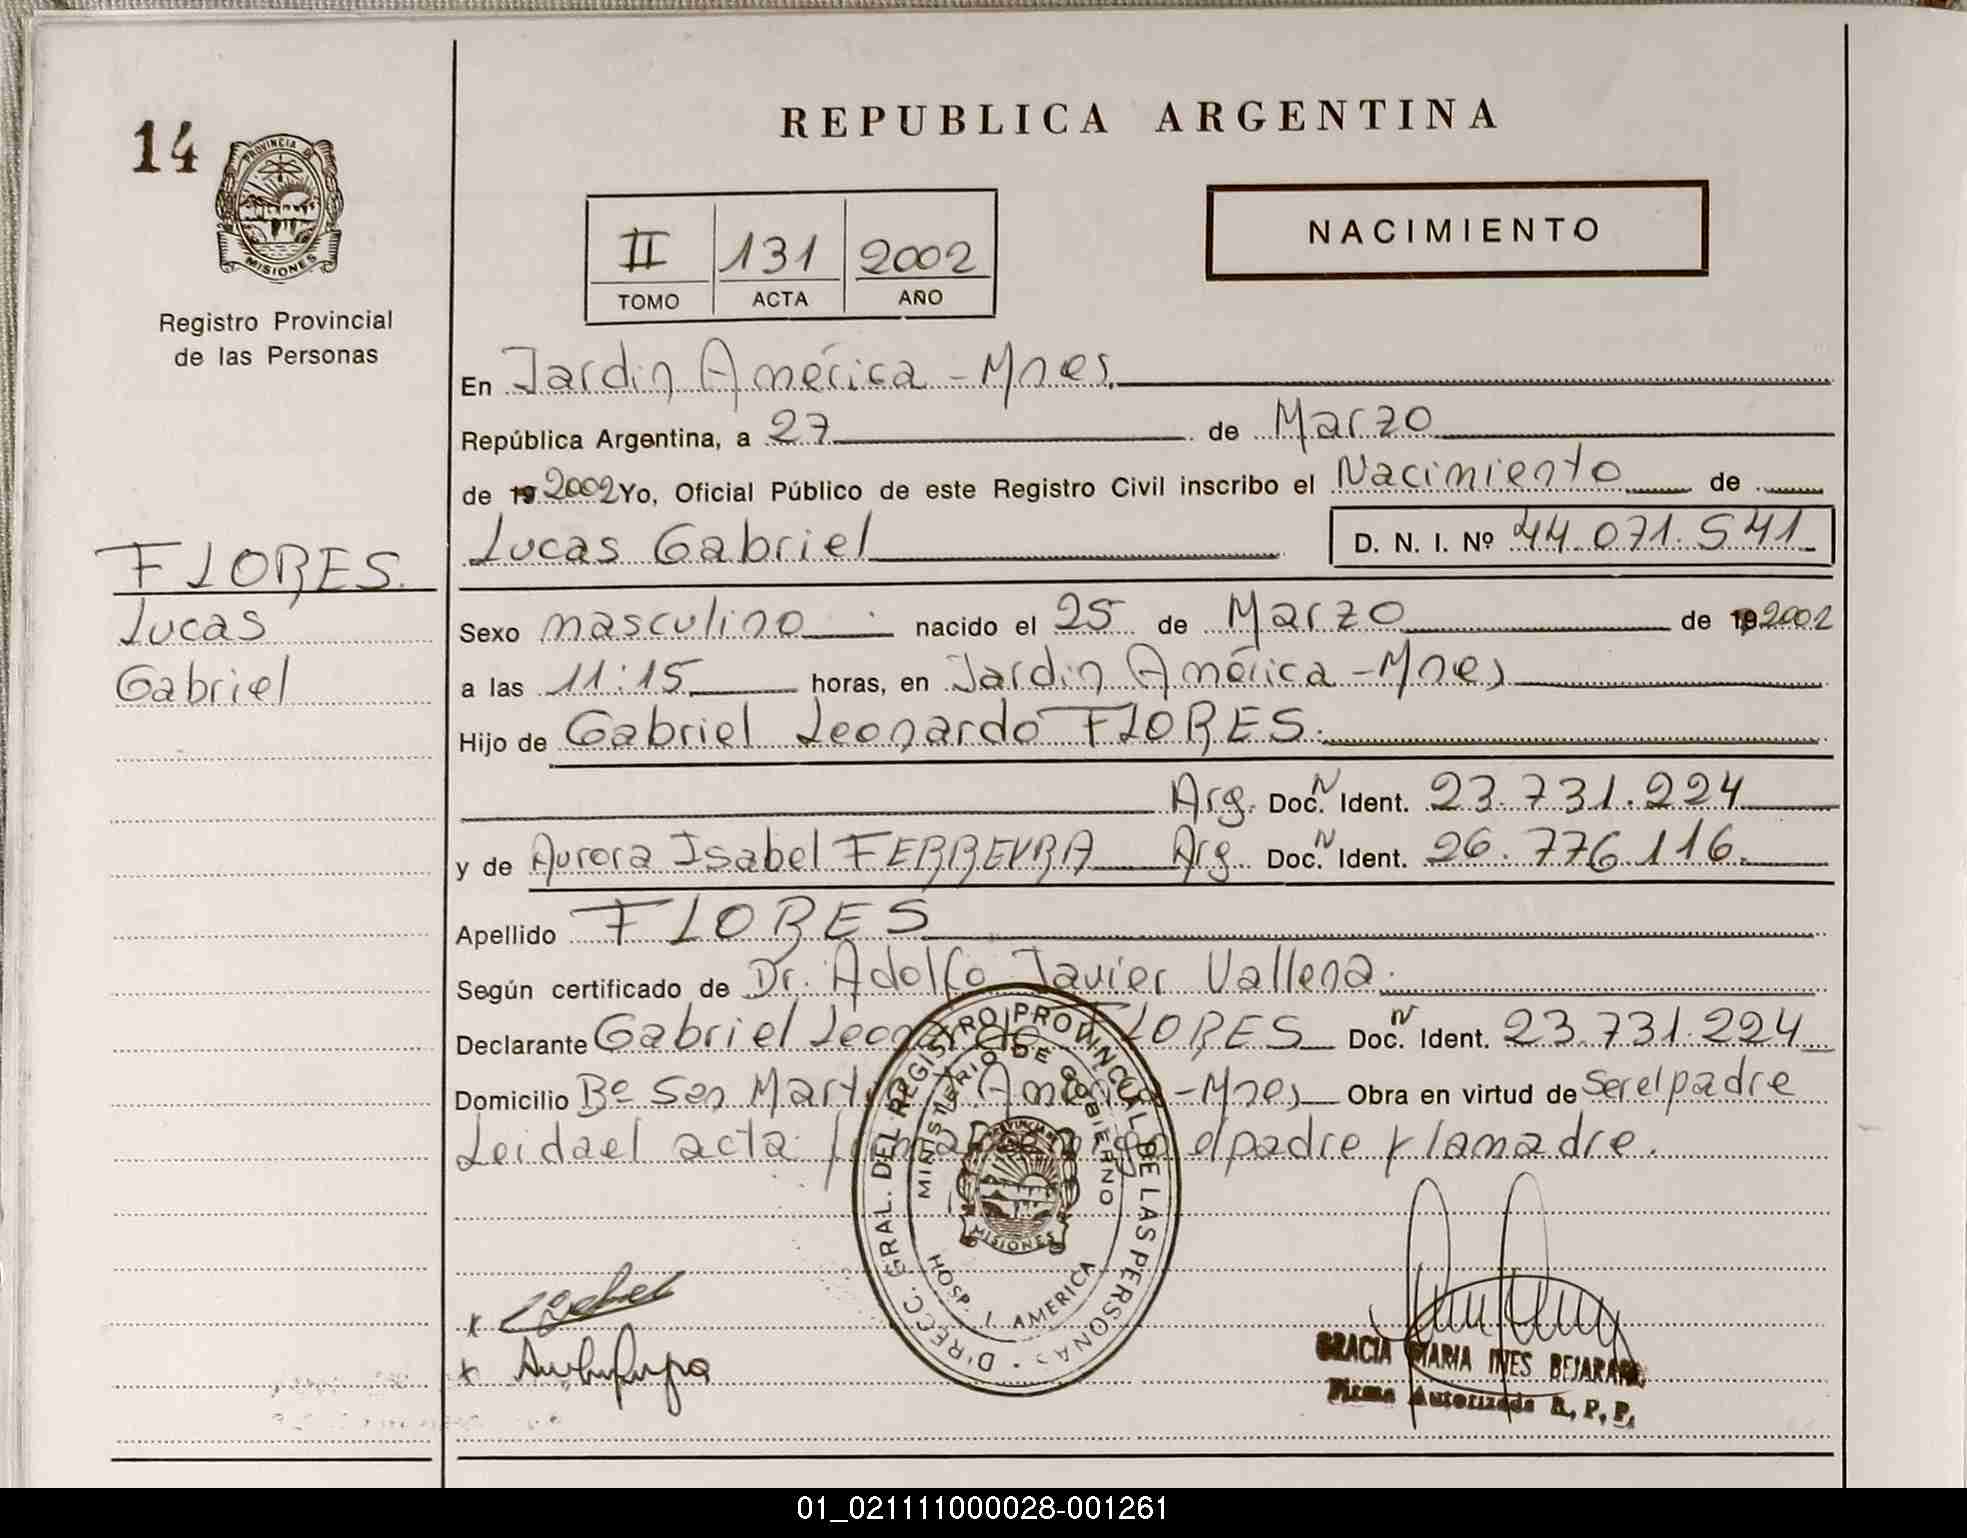 14
PROVINCIA DE
MISIONES
Registro Provincial
de las Personas
FLORES.
Lucas
Gabriel
REPUBLICA ARGENTINA
II 131 2002
TOMO ACTA AÑO
NACIMIENTO
En Jardin América - Mnes,
República Argentina, a 27 de Marzo
de 19 2002 Yo, Oficial Público de este Registro Civil inscribo el Nacimiento de
Lucas Gabriel D. N. I. Nº 44.071.541
Sexo masculino nacido el 25 de Marzo de 19 2002
a las 11:15 horas, en Jardin América - Mnes,
Hijo de Gabriel Leonardo FLORES.
Arg. Doc. N Ident. 23.731.224
y de Aurora Isabel FERREYRA Arg. Doc. N Ident. 26.776.116.
Apellido FLORES
Según certificado de Dr. Adolfo Javier Vallena.
Declarante Gabriel Leonardo FLORES Doc. N Ident. 23.731.224
Domicilio Bº San Martin J. América - Mnes, Obra en virtud de ser el padre
Leida el acta firman el padre y la madre.
DIRECC. GRAL. DEL REGISTRO PROVINCIAL DE LAS PERSONAS
MINISTERIO DE GOBIERNO
PROVINCIA DE
MISIONES
HOSP. J. AMERICA
x
x
GRACIA MARIA INES BEJARANO
Firma Autorizada R. P. P.
01_021111000028-001261